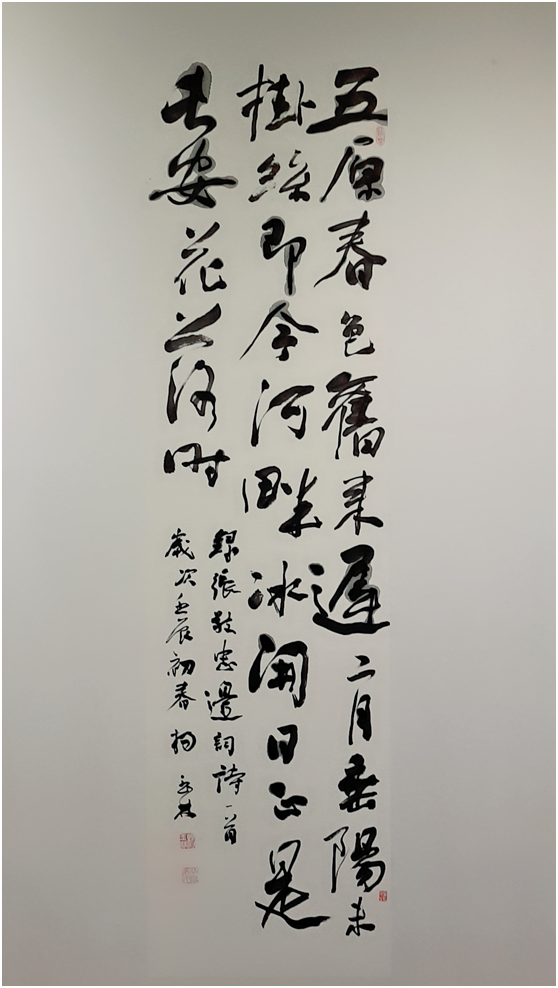 五原春色舊來遲二月垂陽未
掛絲即今河畔冰開日正是
長安花落时
錄張敬忠邊詞詩一首
歲次壬辰初春